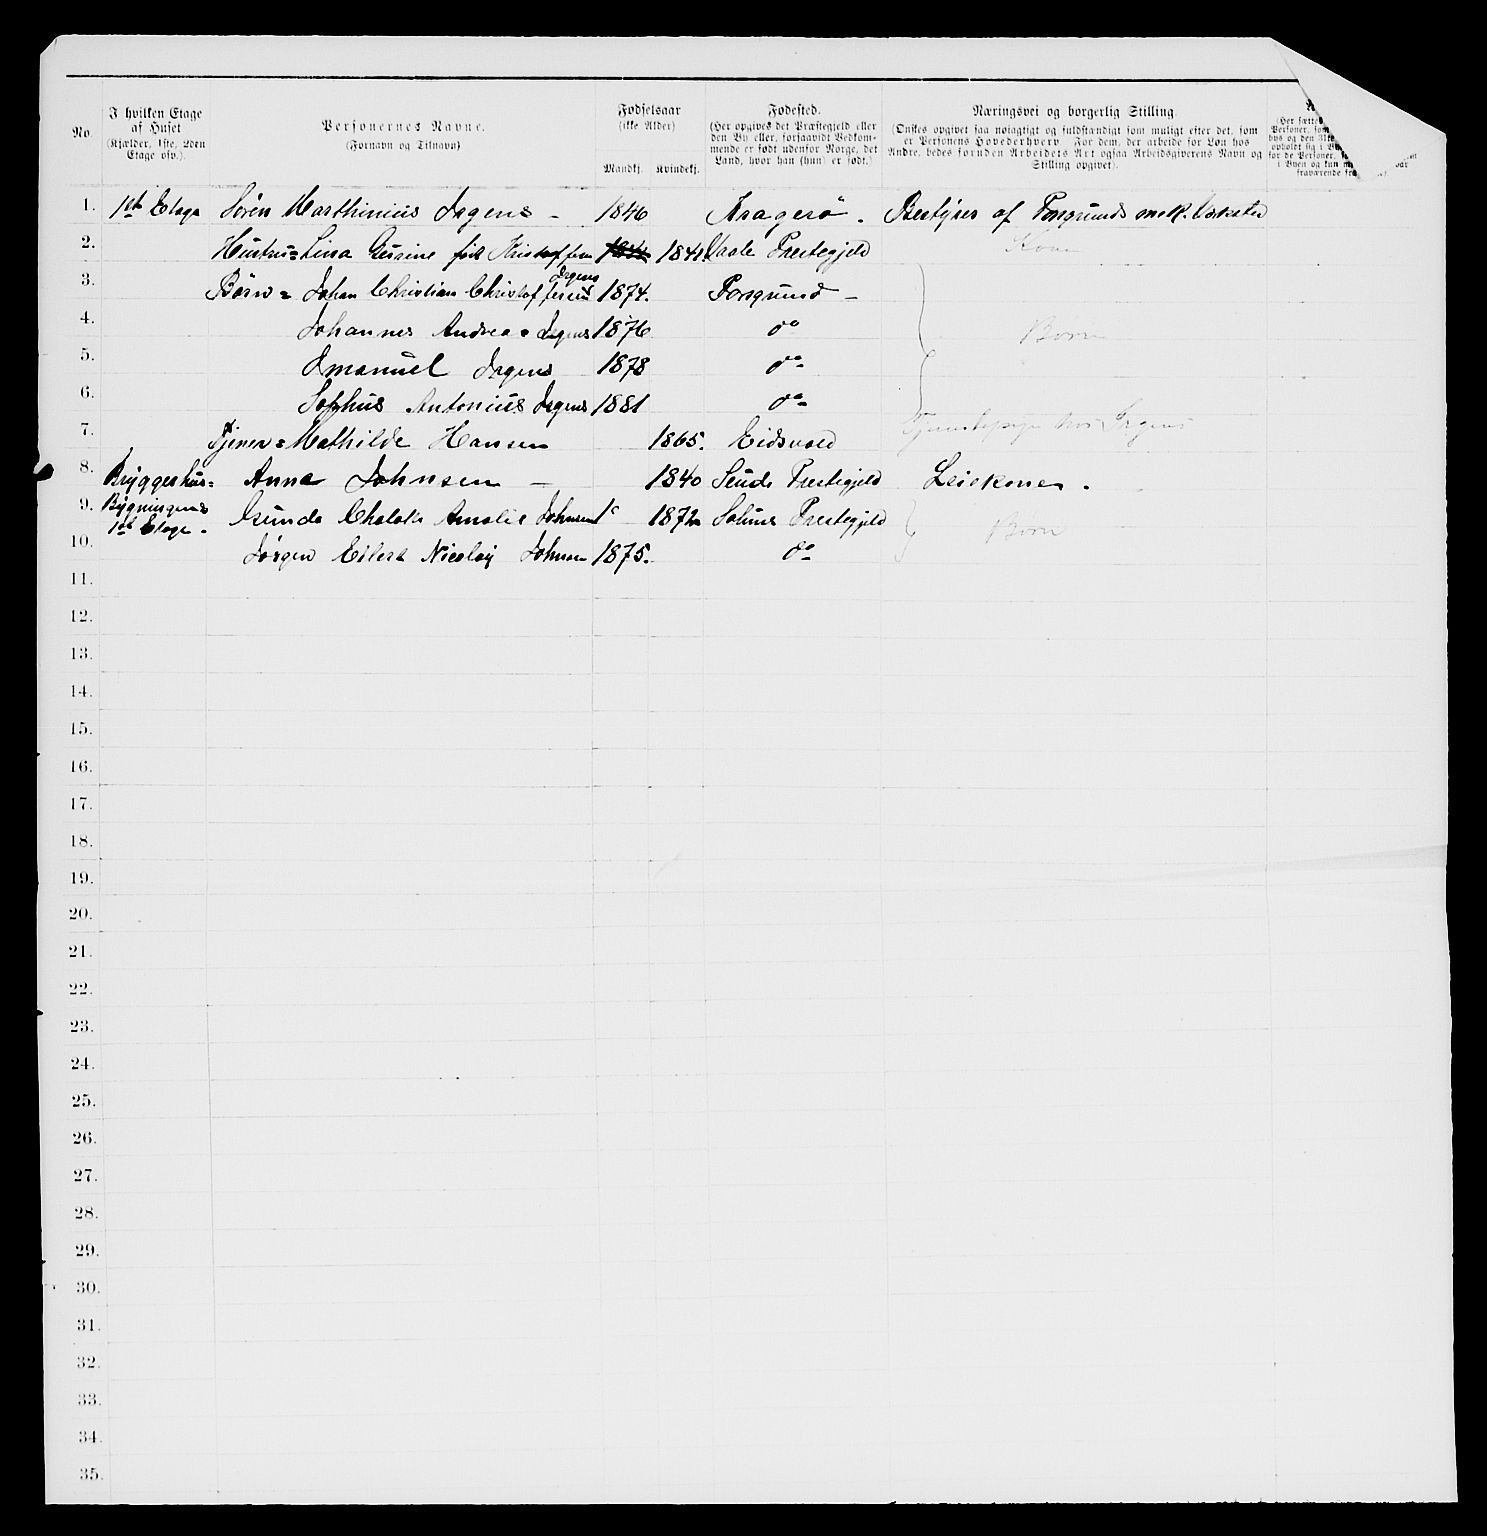 No.
I hvilken Etage
af Huset
(Kjælder, 1ste, 2den
Etage osv.).
Personernes Navne.
(Fornavn og Tilnavn)
Fødselsaar
(ikke Alder)
Mandkj. Kvindekj.
Fødested.
(Her opgives det Præstegjeld eller
den By eller, forsaavidt Vedkom-
mende er født udenfor Norge, det
Land, hvor han (hun) er født.)
Næringsvei og borgerlig Stilling.
(Ønskes opgivet saa nøiagtigt og fuldstændigt som muligt efter det, som
er Personens Hovederhverv. For dem, der arbeide for Løn hos
Andre, bedes foruden Arbeidets Art ogsaa Arbeidsgiverens Navn og
Stilling opgivet).
(Her sættes
Personer, som
1. 1st Etage Sören Marthinius Irgens - 1846 Kragerö. Bestyrer af Porsgrunds mek. Værksted
2. Hustru = Lina Gurine född Kristoffersen 1841 Vaale Prestegjeld Kone
3. Börn = Johan Christian Christoffersen Irgens 1874. Porsgrund -
4. Johannes Andreas Irgens 1876 do Børn
5. Emanuel Irgens 1878 do
6. Sophus Antonius Irgens 1881 do
7. Tjener = Mathilde Hansen 1865. Eidsvold Tjenestepige hos Irgens
8. Bryggerhus= Anna Johnsen - 1840 Seude Prestegjeld Leiekone.
9. Bygningens 1st Etage. Gunda Amalie Johnsen 1872 Solums Prestegjeld Børn
10. Jörgen Eilert Nicolaij Johnsen 1875. do
11.
12.
13.
14.
15.
16.
17.
18.
19.
20.
21.
22.
23.
24.
25.
26.
27.
28.
29.
30.
31.
32.
33.
34.
35.